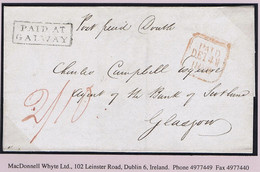 Post paid Double
PAID AT
GALWAY
PAID
Charles Campbell Esquire
Agent of the Bank of Scotland
2/10
Glasgow
MacDonnell Whyte Ltd., 102 Leinster Road, Dublin 6, Ireland. Phone 4977449 Fax 4977440